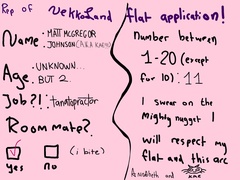 Rep of Nekkoland flat application!
Name: • MATT MCGREGOR
JOHNSON (A.K.A KAME)
Age: • UNKNOWN...
BUT 2
Job?!: tanatopractor
Room mate?:
yes
no (i bite)
Number between
1-20 (except
for 10): 11
I swear on the
Mighty nugget I
will respect my
flat and this arc
and